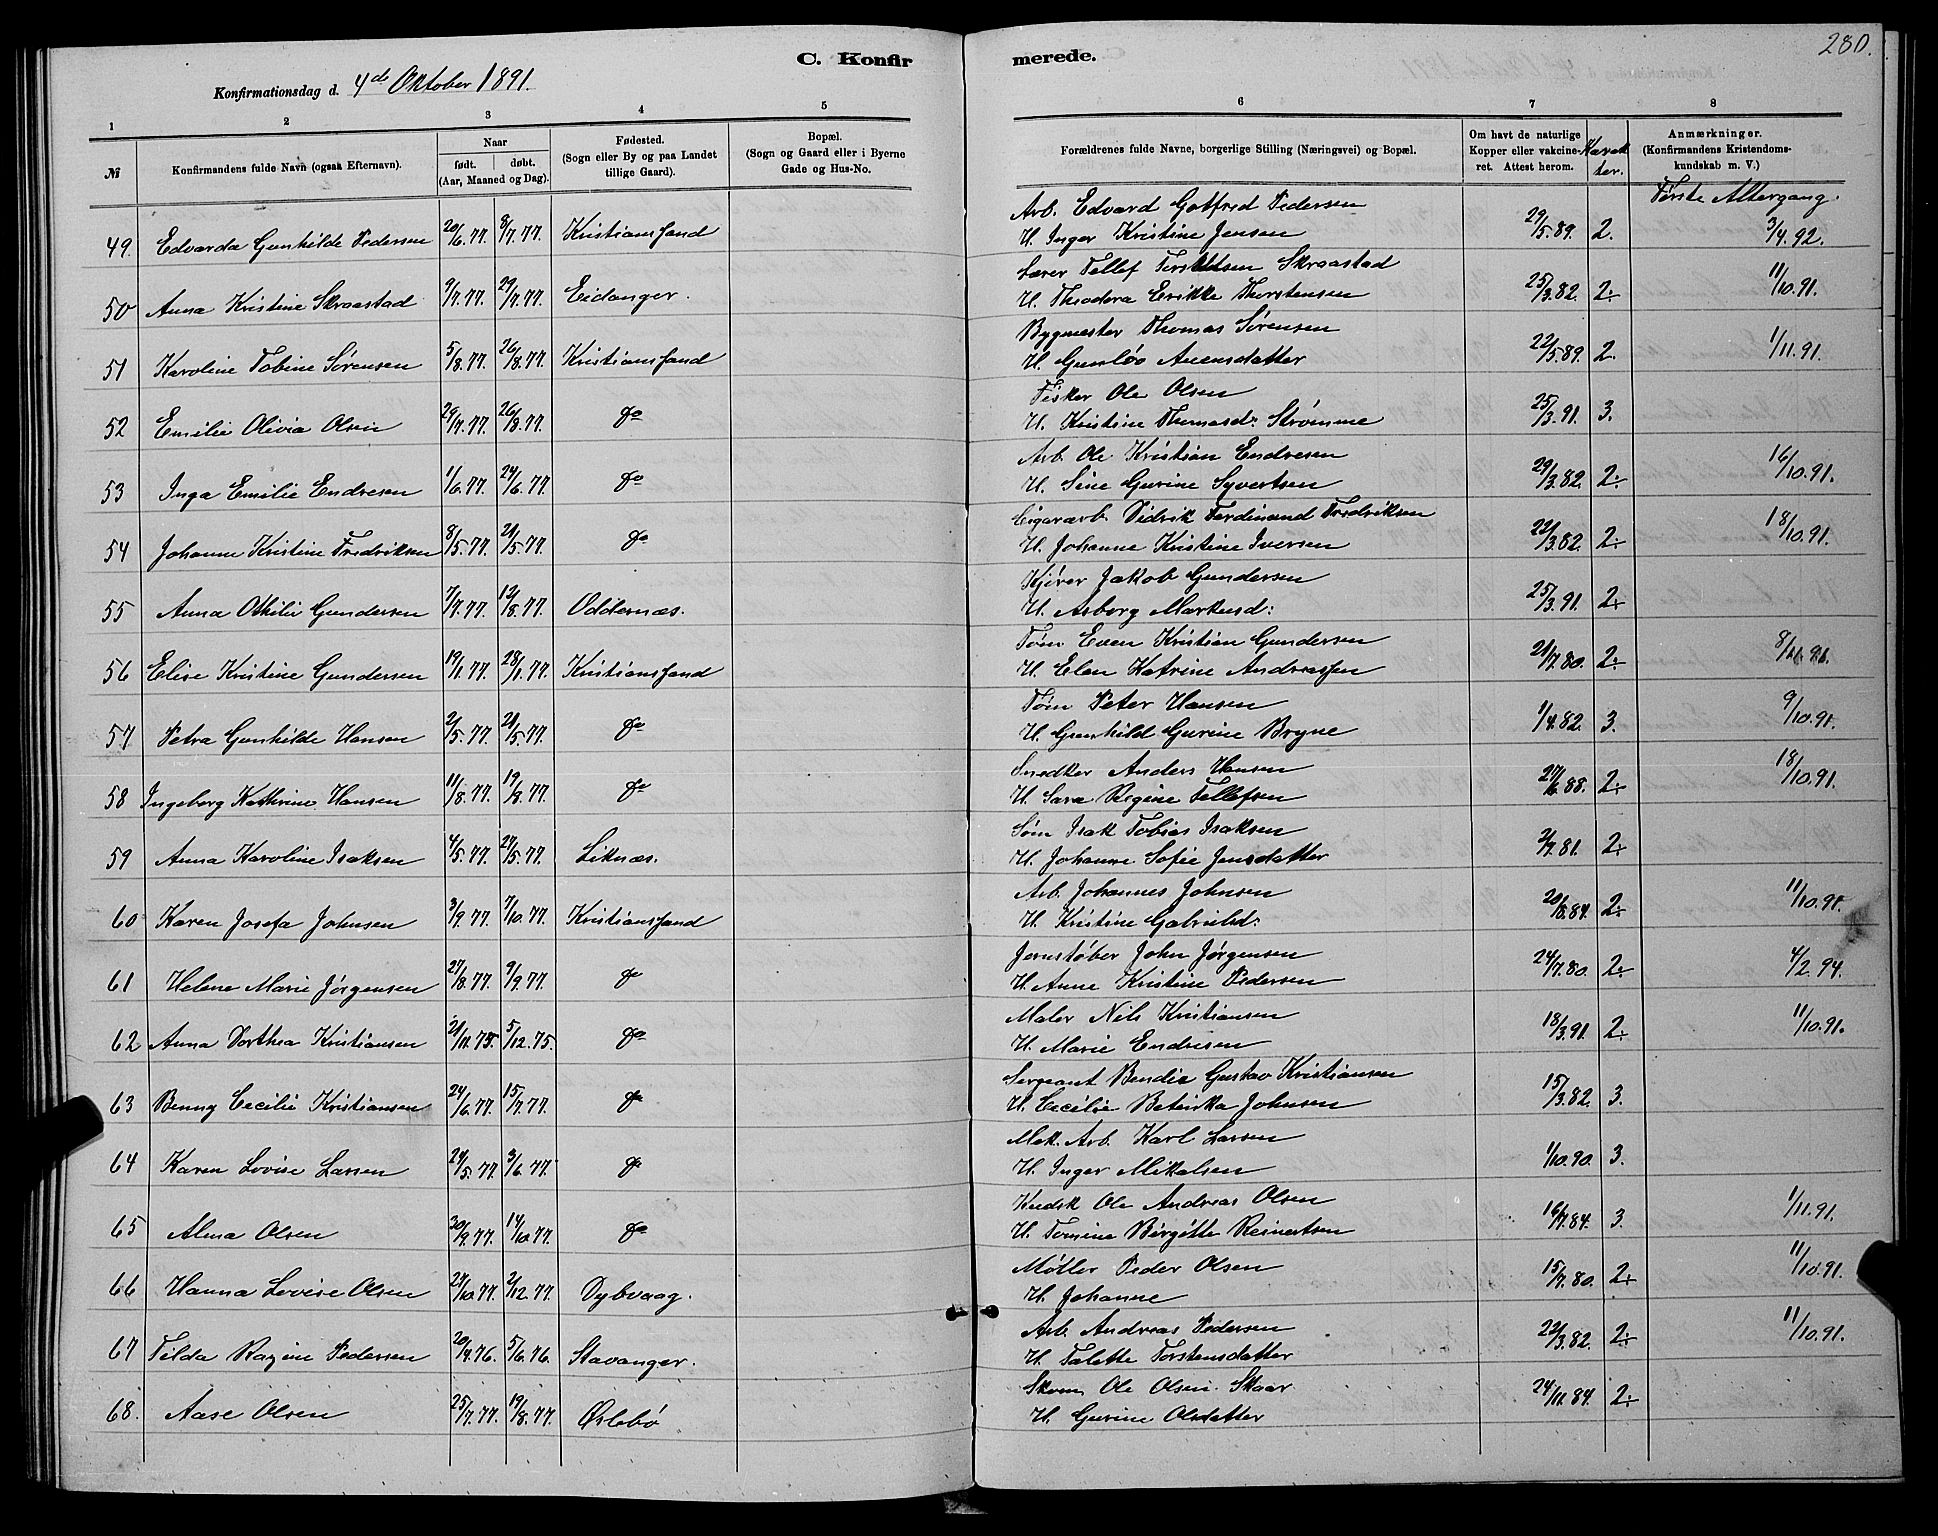 280.
C. Konfirmerede.
Konfirmationsdag d. 4de Oktober 1891.
1 2 3 4 5 6 7 8
№
Konfirmandens fulde Navn (ogsaa Efternavn).
Naar
født. døbt.
(Aar, Maaned og Dag).
Fødested.
(Sogn eller By og paa Landet
tillige Gaard).
Bopæl.
(Sogn og Gaard eller i Byerne
Gade og Hus-No.
Forældrenes fulde Navne, borgerlige Stilling (Næringsvei) og Bopæl.
Om havt de naturlige
Kopper eller vakcine-
ret. Attest herom.
Karak
ter.
Anmærkninger.
(Konfirmandens Kristendoms-
kundskab m. V.)
Første Altergang.
Arb. Edvard Gotfred Pedersen
49. Edvarda Gunhilde Pedersen 20/6.77. 8/7.77. Kristianssand H. Inger Kristine Jensen 29/5.89. 2. 3/4.92.
Lærer Tellef Skraastad
50 Anna Kristine Skraastad 9/7.77. 29/7.77. Eidanger. H. Theodora Erikke Thorstensen 25/3.82. 2. 11/10.91.
Bygmester Thomas Sørensen
51 Karoline Tobine Sørensen 5/8.77. 26/8.77. Kristianssand H. Gunløv Auensdatter 22/5.89. 2. 1/11.91.
Fisker Ole Olsen
52 Emilie Olivia Olsen 29/7.77. 26/8.77. do H. Kristine Thomasd. Strømme 25/3.91. 3.
Arb. Ole Kristian Endresen
53 Inga Emilie Endresen 1/6.77. 24/6.77. do H. Sine Gurine Syvertsen 29/3.82. 2. 16/10.91.
Cigararb. Didrik Ferdinand Fredriksen
54 Johanne Kristine Fredriksen 8/5.77. 21/5.77. do H. Johanne Kristine Iversen 22/3.82. 2. 18/10.91.
Kjører Jakob Gundersen
55 Anna Othilie Gundersen 7/7.77. 12/8.77. Oddernæs. H. Asborg Markusd: 25/3.91. 2.
Tøm Even Kristian Gundersen
56 Elise Kristine Gundersen 19/1.77. 28/1.77. Kristianssand H. Elen Katrine Andreassen 21/7.80. 2. 8/11.91.
Tøm Peter Hansen
57 Petra Gunhilde Hansen 2/5.77. 21/5.77. do H. Gunhild Gurine Bryne 1/4.82. 3. 9/10.91.
Snedker Anders Hansen
58 Ingeborg Kathrine Hansen 11/8.77. 19/8.77. do H. Sara Regine Tellefsen 27/6.88. 2. 18/10.91.
Søm Isak Tobias Isaksen
59 Anna Karoline Isaksen 4/5.77. 27/5.77. Liknæs. H. Johanne Sofie Jensdatter 2/7.81. 2.
Arb. Johannes Johnsen
60 Karen Josefa Johnsen 3/9.77. 7/10.77. Kristianssand H. Kristine Gabrielsd: 20/8.84. 2. 11/10.91.
Jernstøber John Jørgensen
61 Helene Marie Jørgensen 27/8.77. 9/9.77. do H. Anne Kristine Pedersen 24/7.80. 2. 4/2.94.
Maler Nils Kristiansen
62 Anna Dorthea Kristiansen 21/11.75. 5/12.75. do H. Marie Endresen 18/3.91. 2. 11/10.91.
Sergeant Bendix Gustav Kristiansen
63 Benny Cecilie Kristiansen 24/6.77. 15/7.77. do H. Cecilie Betinka Johnsen 15/3.82. 3.
Mek. Arb. Karl Larsen
64 Karen Lovise Larsen 24/5.77. 3/6.77. do H. Inger Mikalsen 1/10.90. 3.
Ole Andreas Olsen
65 Alma Olsen 30/9.77. 14/10.77. do H. Tomine Birgitte Reinertsen 16/7.84. 3. 1/11.91.
Møller Peder Olsen
66 Hanna Lovise Olsen 27/10.77. 2/12.77. Dybvaag. H. Johanne 15/7.80. 2. 11/10.91.
Arb. Andreas Pedersen
67 Tilda Ragine Pedersen 20/4.76. 5/6.76. Stavanger. H. Talette Torstensdatter 22/3.82. 2. 11/10.91.
Skom Ole Olsen Skaar
68. Aase Olsen 25/7.77. 19/8.77. Øslebø H. Gurine Olsdatter 24/11.84. 2.